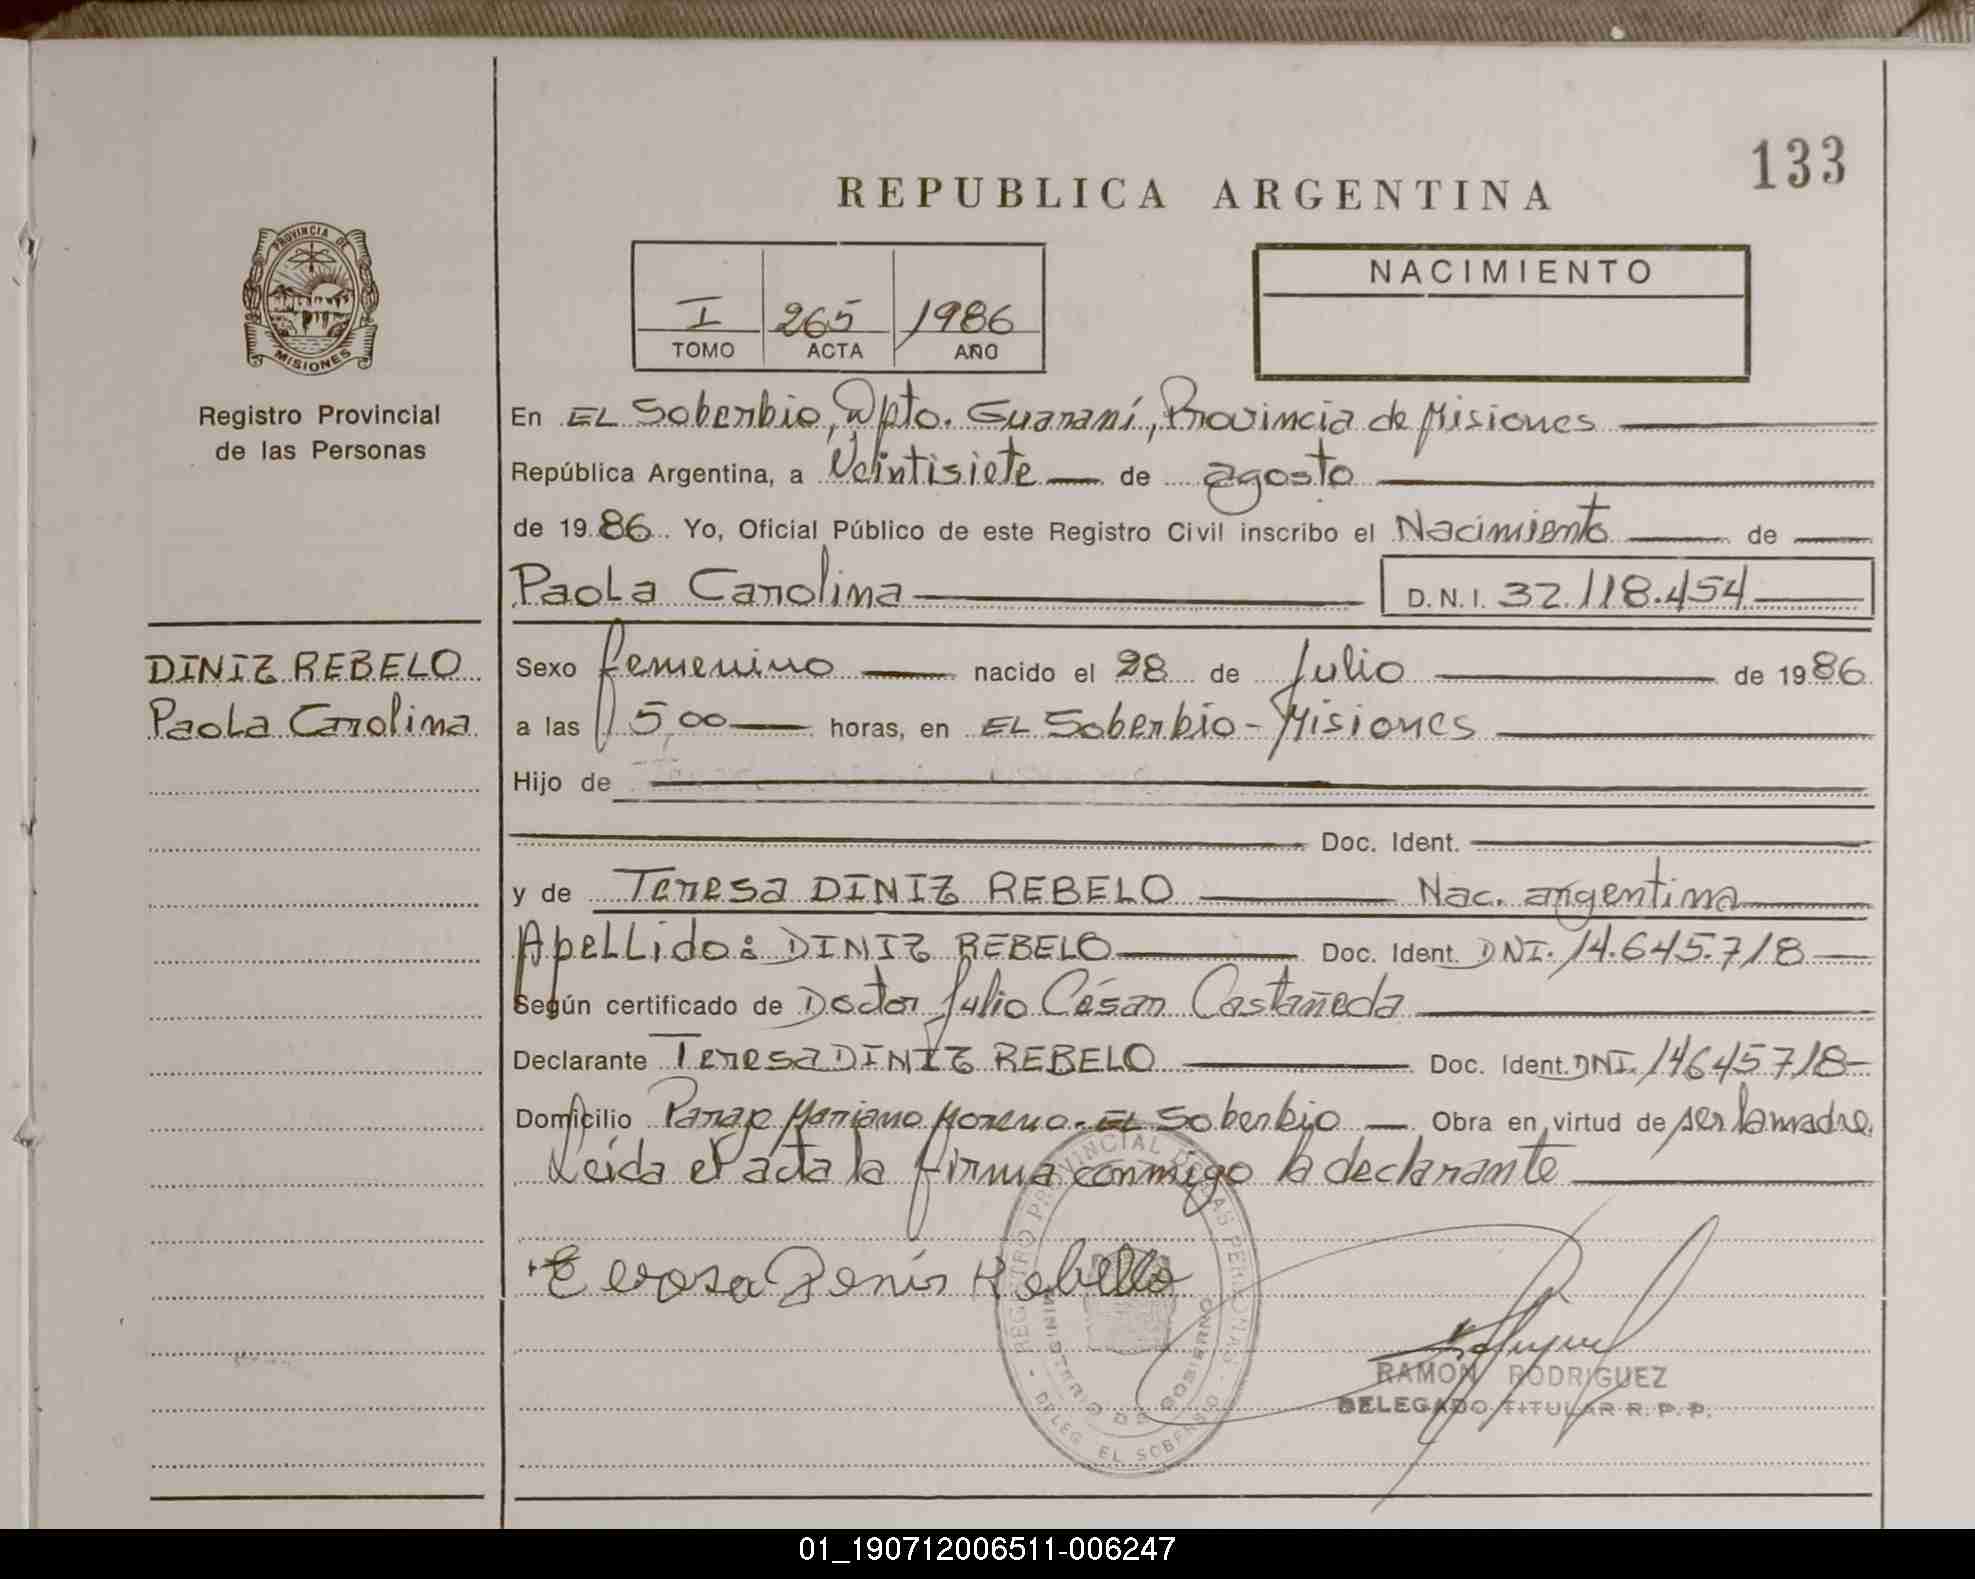 133
REPUBLICA ARGENTINA
PROVINCIA DE
MISIONES
Registro Provincial
de las Personas
I 265 1986
TOMO ACTA AÑO
NACIMIENTO
En EL Soberbio, Dpto. Guaraní, Provincia de Misiones
República Argentina, a Veintisiete de agosto
de 1986 Yo, Oficial Público de este Registro Civil inscribo el Nacimiento de
Paola Carolina D.N.I. 32.118.454
DINIZ REBELO
Paola Carolina
Sexo femenino nacido el 28 de Julio de 1986
a las 15,00 horas, en EL Soberbio - Misiones
Hijo de
Doc. Ident.
y de Teresa DINIZ REBELO Nac. argentina
Apellido: DINIZ REBELO Doc. Ident. DNI. 14.645.718
Según certificado de Doctor Julio César Castañeda
Declarante Teresa DINIZ REBELO Doc. Ident. DNI. 14645718
Domicilio Paraje Mariano Moreno - EL Soberbio Obra en virtud de ser la madre.
Leída el acta la firma conmigo la declarante
Rebello
REGISTRO PROVINCIAL DE LAS PERSONAS
MINISTERIO DE GOBIERNO
DELEG. EL SOBERBIO
RAMON RODRIGUEZ
DELEGADO TITULAR R. P. P.
01_190712006511-006247